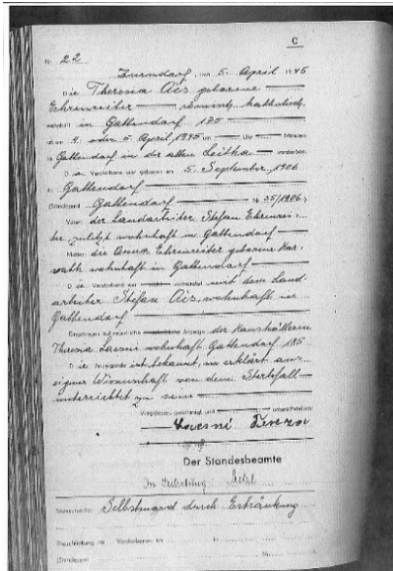 C
Nr. 22
Zurndorf, den 5. April 1945
Die Theresia Acs geborene
Ehrenreiter
wohnhaft in Gattendorf 185
ist am 4. oder 5. April 1945 um Uhr Minuten
in Gattendorf in der alten Leitha verstorben.
Die Verstorbene war geboren am 5. September 1906
in Gattendorf
(Standesamt Gattendorf Nr. 35/1906)
Vater: der Landarbeiter Stefan Ehrenrei-
ter, zuletzt wohnhaft in Gattendorf
Mutter: die Anna Ehrenreiter geborene Hor-
vath wohnhaft in Gattendorf
Die Verstorbene war verheiratet mit dem Land-
arbeiter Stefan Acs, wohnhaft in
Gattendorf
Eingetragen auf mündliche Anzeige der
Theresia wohnhaft Gattendorf 185
Die Anzeigende ist bekannt, sie erklärt aus
eigener Wissenschaft von dem Sterbefall
unterrichtet zu sein
Vorgelesen, genehmigt und unterschrieben
Der Standesbeamte
In Vertretung
Todesursache: Selbstmord durch Ertränkung
Eheschließung der Verstorbenen am in
(Standesamt Nr.